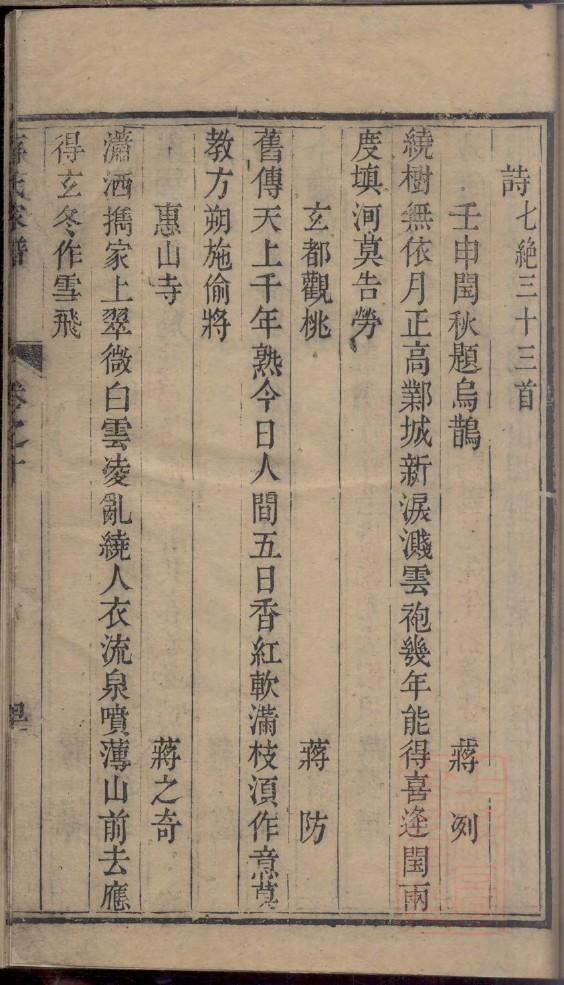 詩七絶三十三首
壬申閏秋題烏鵲 蔣列
繞樹無依月正高鄴城新淚濺雲袍幾年能得喜逢閏兩
度填河莫告勞
玄都觀桃 蔣防
舊傳天上千年熟今日人間五日香紅軟滿枝湏作意莫
教方朔施偷將
惠山寺 蔣之奇
瀟洒擕家上翠微白雲凌亂繞人衣流泉噴薄山前去應
得玄冬作雪飛
蔣氏家譜 卷之十